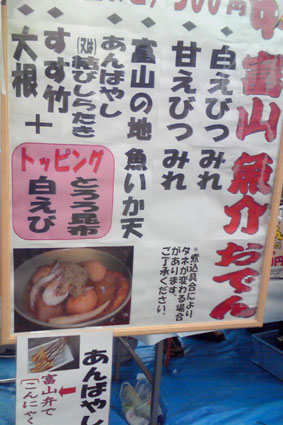 富山魚介おでん
白えびつみれ
甘えびつみれ
富山の地魚いか天
あんばやし
(又は)結びしらたき
すす竹
大根
+
トッピング
とろろ昆布
白えび
※煮込具合により
タネが変わる場合
があります。
ご了承ください。
あんばやし
富山弁で
こんにゃく